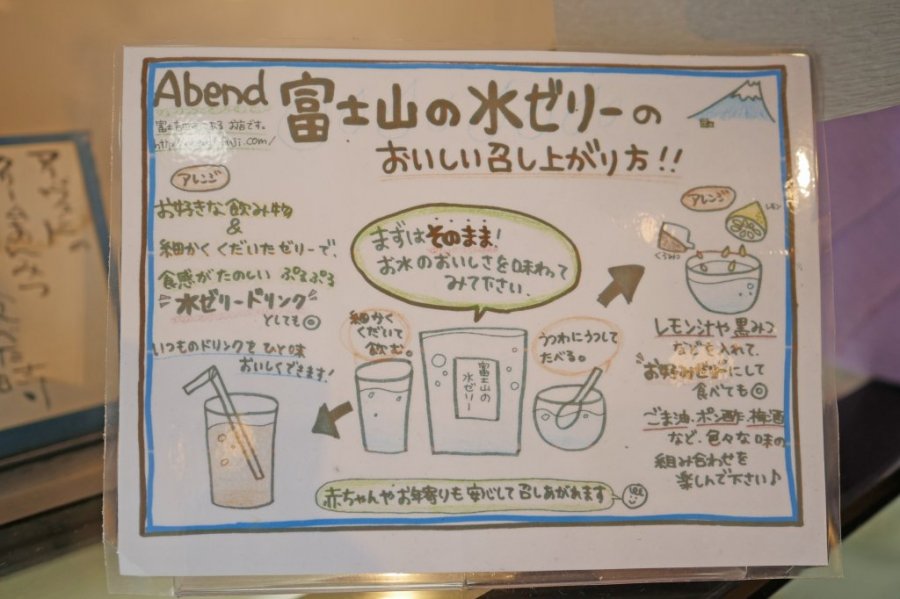 Abend 富士山の水ゼリーの
おいしい召し上がり方!!
お店です。
アレンジ
お好きな飲み物
&
細かくくだいたゼリーで、
食感がたのしい ぷるぷる
"水ゼリードリンク"
としても◎
いつものドリンクをひと味
おいしくできます!
まずはそのまま!
お水のおいしさを味わって
みて下さい。
細かく
くだいて
飲む。
富士山の
水ゼリー
うつわにうつして
たべる。
アレンジ
レモン
くろみつ
レモン汁や黒みつ
などを入れて、
"お好みゼリー"にして
食べても◎
ごま油、ポン酢、梅酒
など、色々な味の
組み合わせを
楽しんで下さい♪
赤ちゃんやお年寄りも安心して召しあがれます